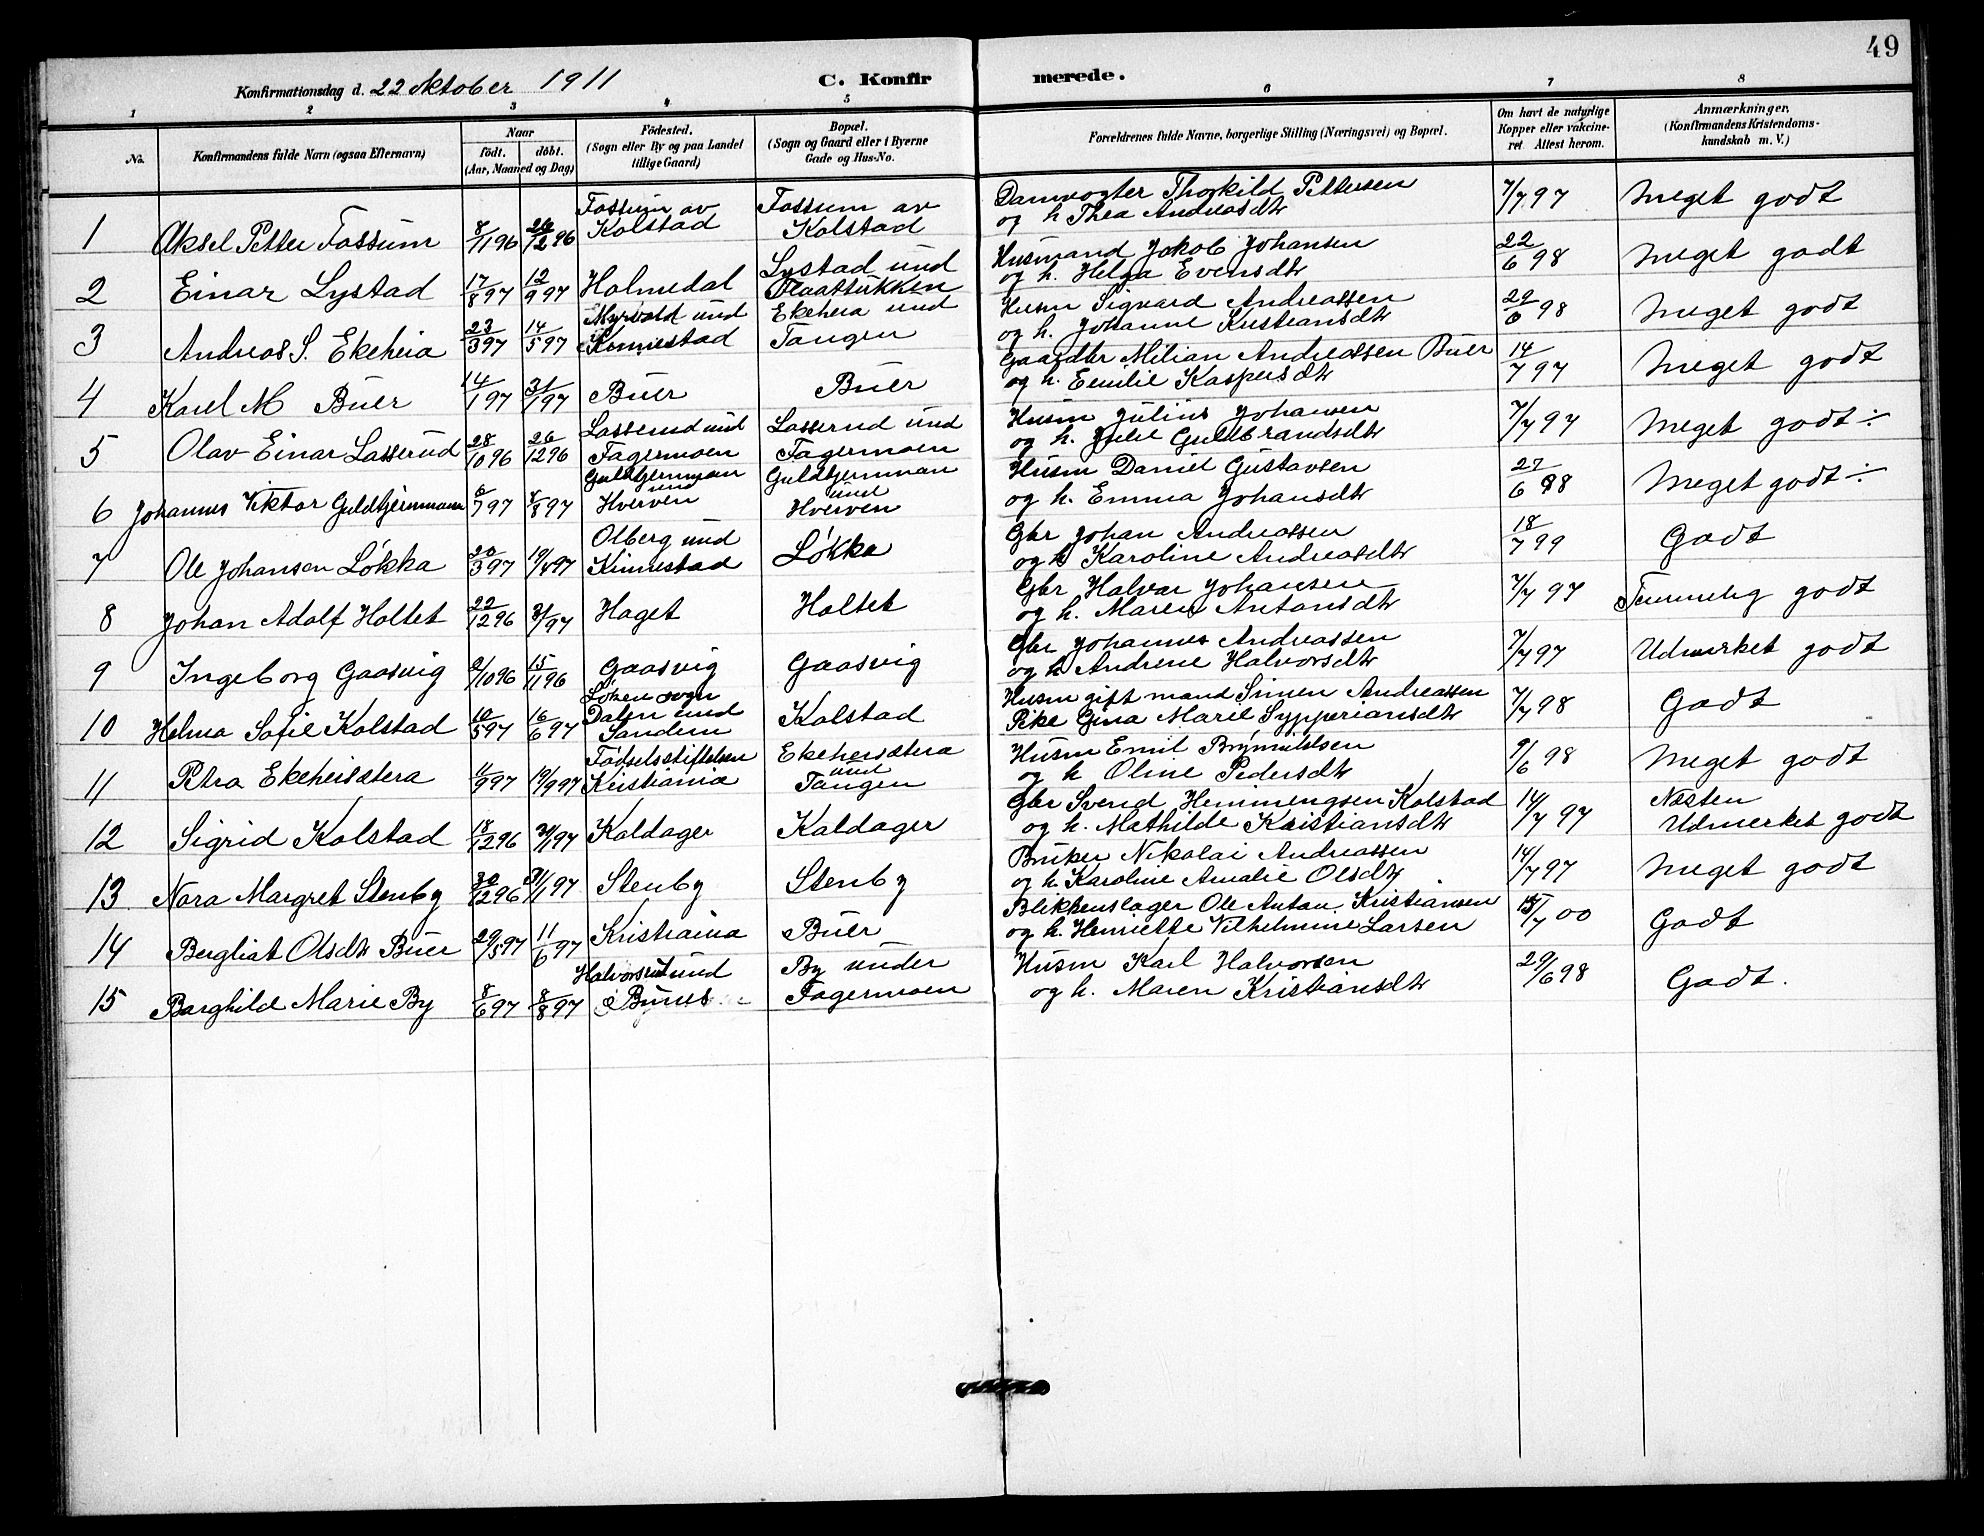 49
Konfirmationsdag d. 22 Oktober 1911 C. Konfirmerede.
1 2 3 4 5 6 7 8
No. Konfirmandens fulde Navn (ogsaa Efternavn) Naar født. døbt. (Aar, Maaned og Dag) Fødested. (Sogn eller By og paa Landet tillige Gaard) Bopæl. (Sogn og Gaard eller i Byerne Gade og Hus-No. Forældrenes fulde Navne, borgerlige Stilling (Næringsvei) og Bopæl. Om havt de naturlige Kopper eller vakcineret. Attest herom. Anmærkninger. (Konfirmandens Kristendomskundskab m. V.)
1 Aksel Petter Fossum 8/11 96 26/12 96 Fossum av Kolstad Fossum av Kolstad Damvogter Thorkild Pettersen og h. Thea Andreasdtr 7/7 97 Meget godt
2 Einar Lystad 17/8 97 12/9 97 Holmedal Lystad und Plaatsukken Husmand Jakob Johansen og h. Helga Evensdtr 22/6 98 Meget godt
3 Andreas S. Ekeheia 23/3 97 14/5 97 Myrvold und Kinnestad Ekeheia und Tangen Husm Sigvard Andreassen og h. Johanne Kristiansdtr 29/6 98 Meget godt
4 Karl M Buer 14/1 97 31/1 97 Buer Buer Gaardbr Milian Andreassen Buer og h. Emilie Kaspersdtr 14/7 97 Meget godt
5 Olav Einar Lasserud 28/10 96 26/12 96 Lasserud und Fagermoen Lasserud und Fagermoen Husm Julius Johansen og h. Julie Guldbrandsdtr 7/7 97 Meget godt ÷
6 Johannes Viktor Guldkjernmoen 6/7 97 /8 97 Guldkjernmoen und Hverven Guldkjernmoen und Hverven Husm Daniel Gustavsen og h. Emma Johansdtr 27/6 98 Meget godt ÷
7 Ole Johansen Løkka 20/3 97 19/4 97 Olberg und Kinnestad Løkka Gbr Johan Andreassen og h Karoline Andreasdtr 18/7 99 Godt
8 Johan Adolf Holtet 22/12 96 97 Haget Holtet Gbr Halvor Johansen og h. Maren Antonsdtr 7/7 97 Temmelig godt
9 Ingeborg Gaasvig 9/10 96 15/11 96 Gaasvig Gaasvig Gbr Johannes Andreassen og h Andrene Halvorsdtr 7/7 97 Udmerket godt
10 Helma Sofie Kolstad 10/5 97 16/6 97 Løken sogn Dalen und Sandem Kolstad Husm gift mand Simen Andreassen Pike Gina Marie Sypperiansdtr 7/7 98 Godt
11 Petra Ekeheisætera 11/9 97 19/9 97 Fødselsstiftelsen Kristiania Ekeheisætera und Tangen Husm Emil Brynnildsen og h Oline Pedersdtr 9/6 98 Meget godt
12 Sigrid Kolstad 18/12 96 97 Kaldager Kaldager Gbr Svend Hemmingsen Kolstad og h. Mathilde Kristiansdtr 14/7 97 Næsten Udmerket godt
13 Nora Margret Stenby 30/12 96 31/1 97 Stenby Stenby Bruker Nikolai Andreassen og h. Karoline Amalie Olsdtr 14/7 97 Meget godt
14 Bergliot Olsdtr Buer 29/5 97 11/6 97 Kristiania Buer Blikkenslager Ole Anton Kristiansen og h. Henriette Vilhelmine Larsen 15/7 00 Godt
15 Borghild Marie By 8/6 97 8/8 97 Halvorsrud und By under Fagermoen Husm Karl Halvorsen og h. Maren Kristiansdtr 29/6 98 Godt.